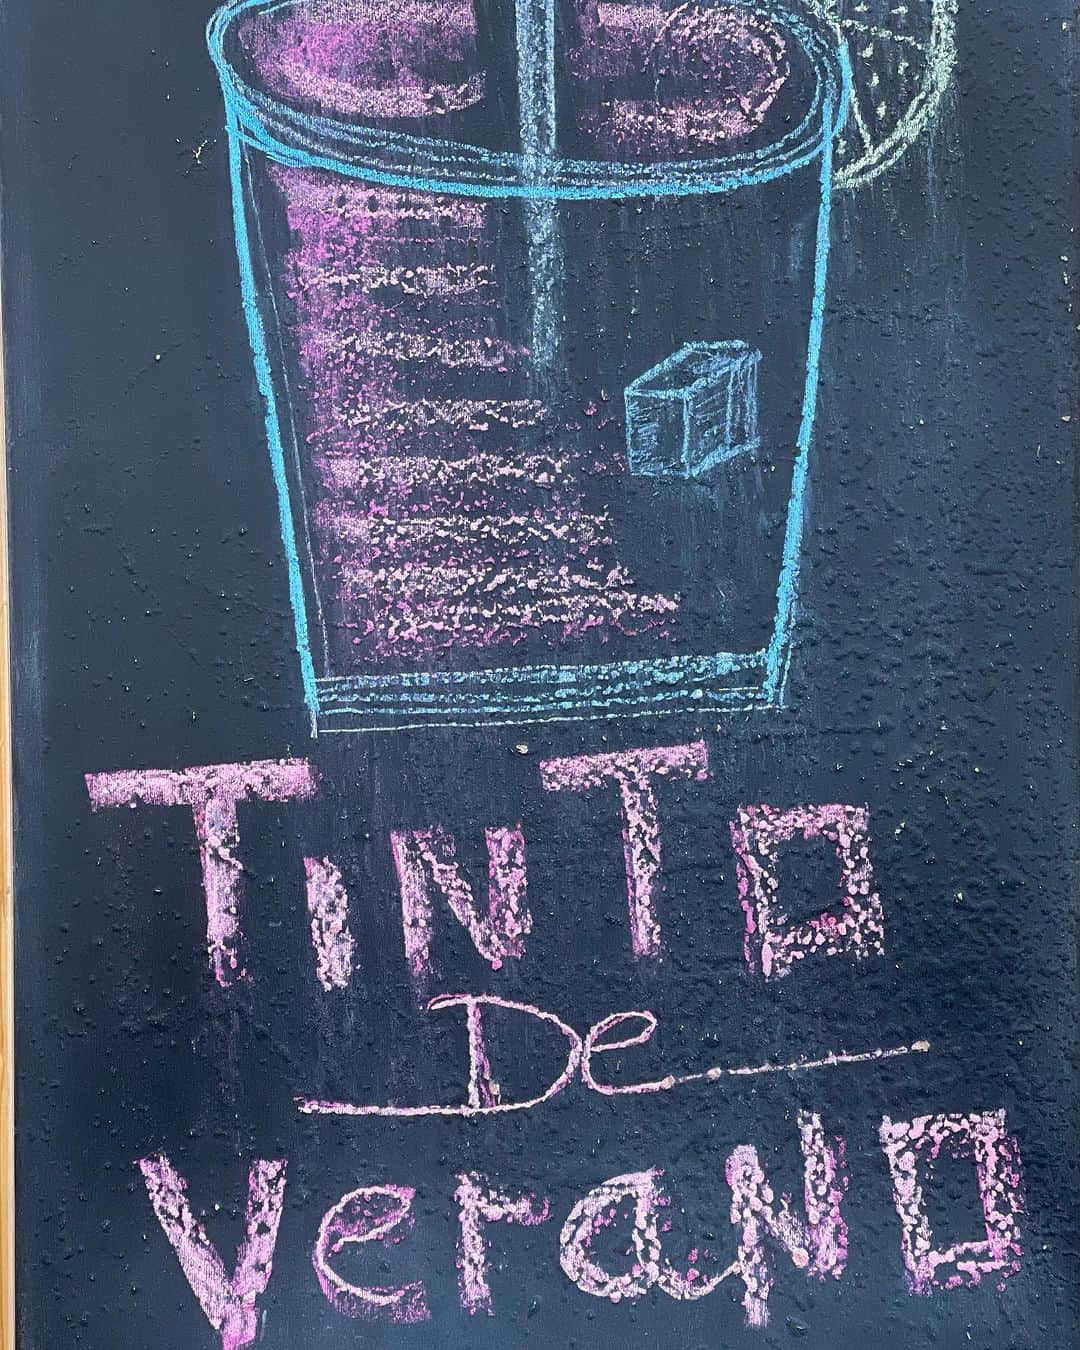 TiNTO
De
VeraNO